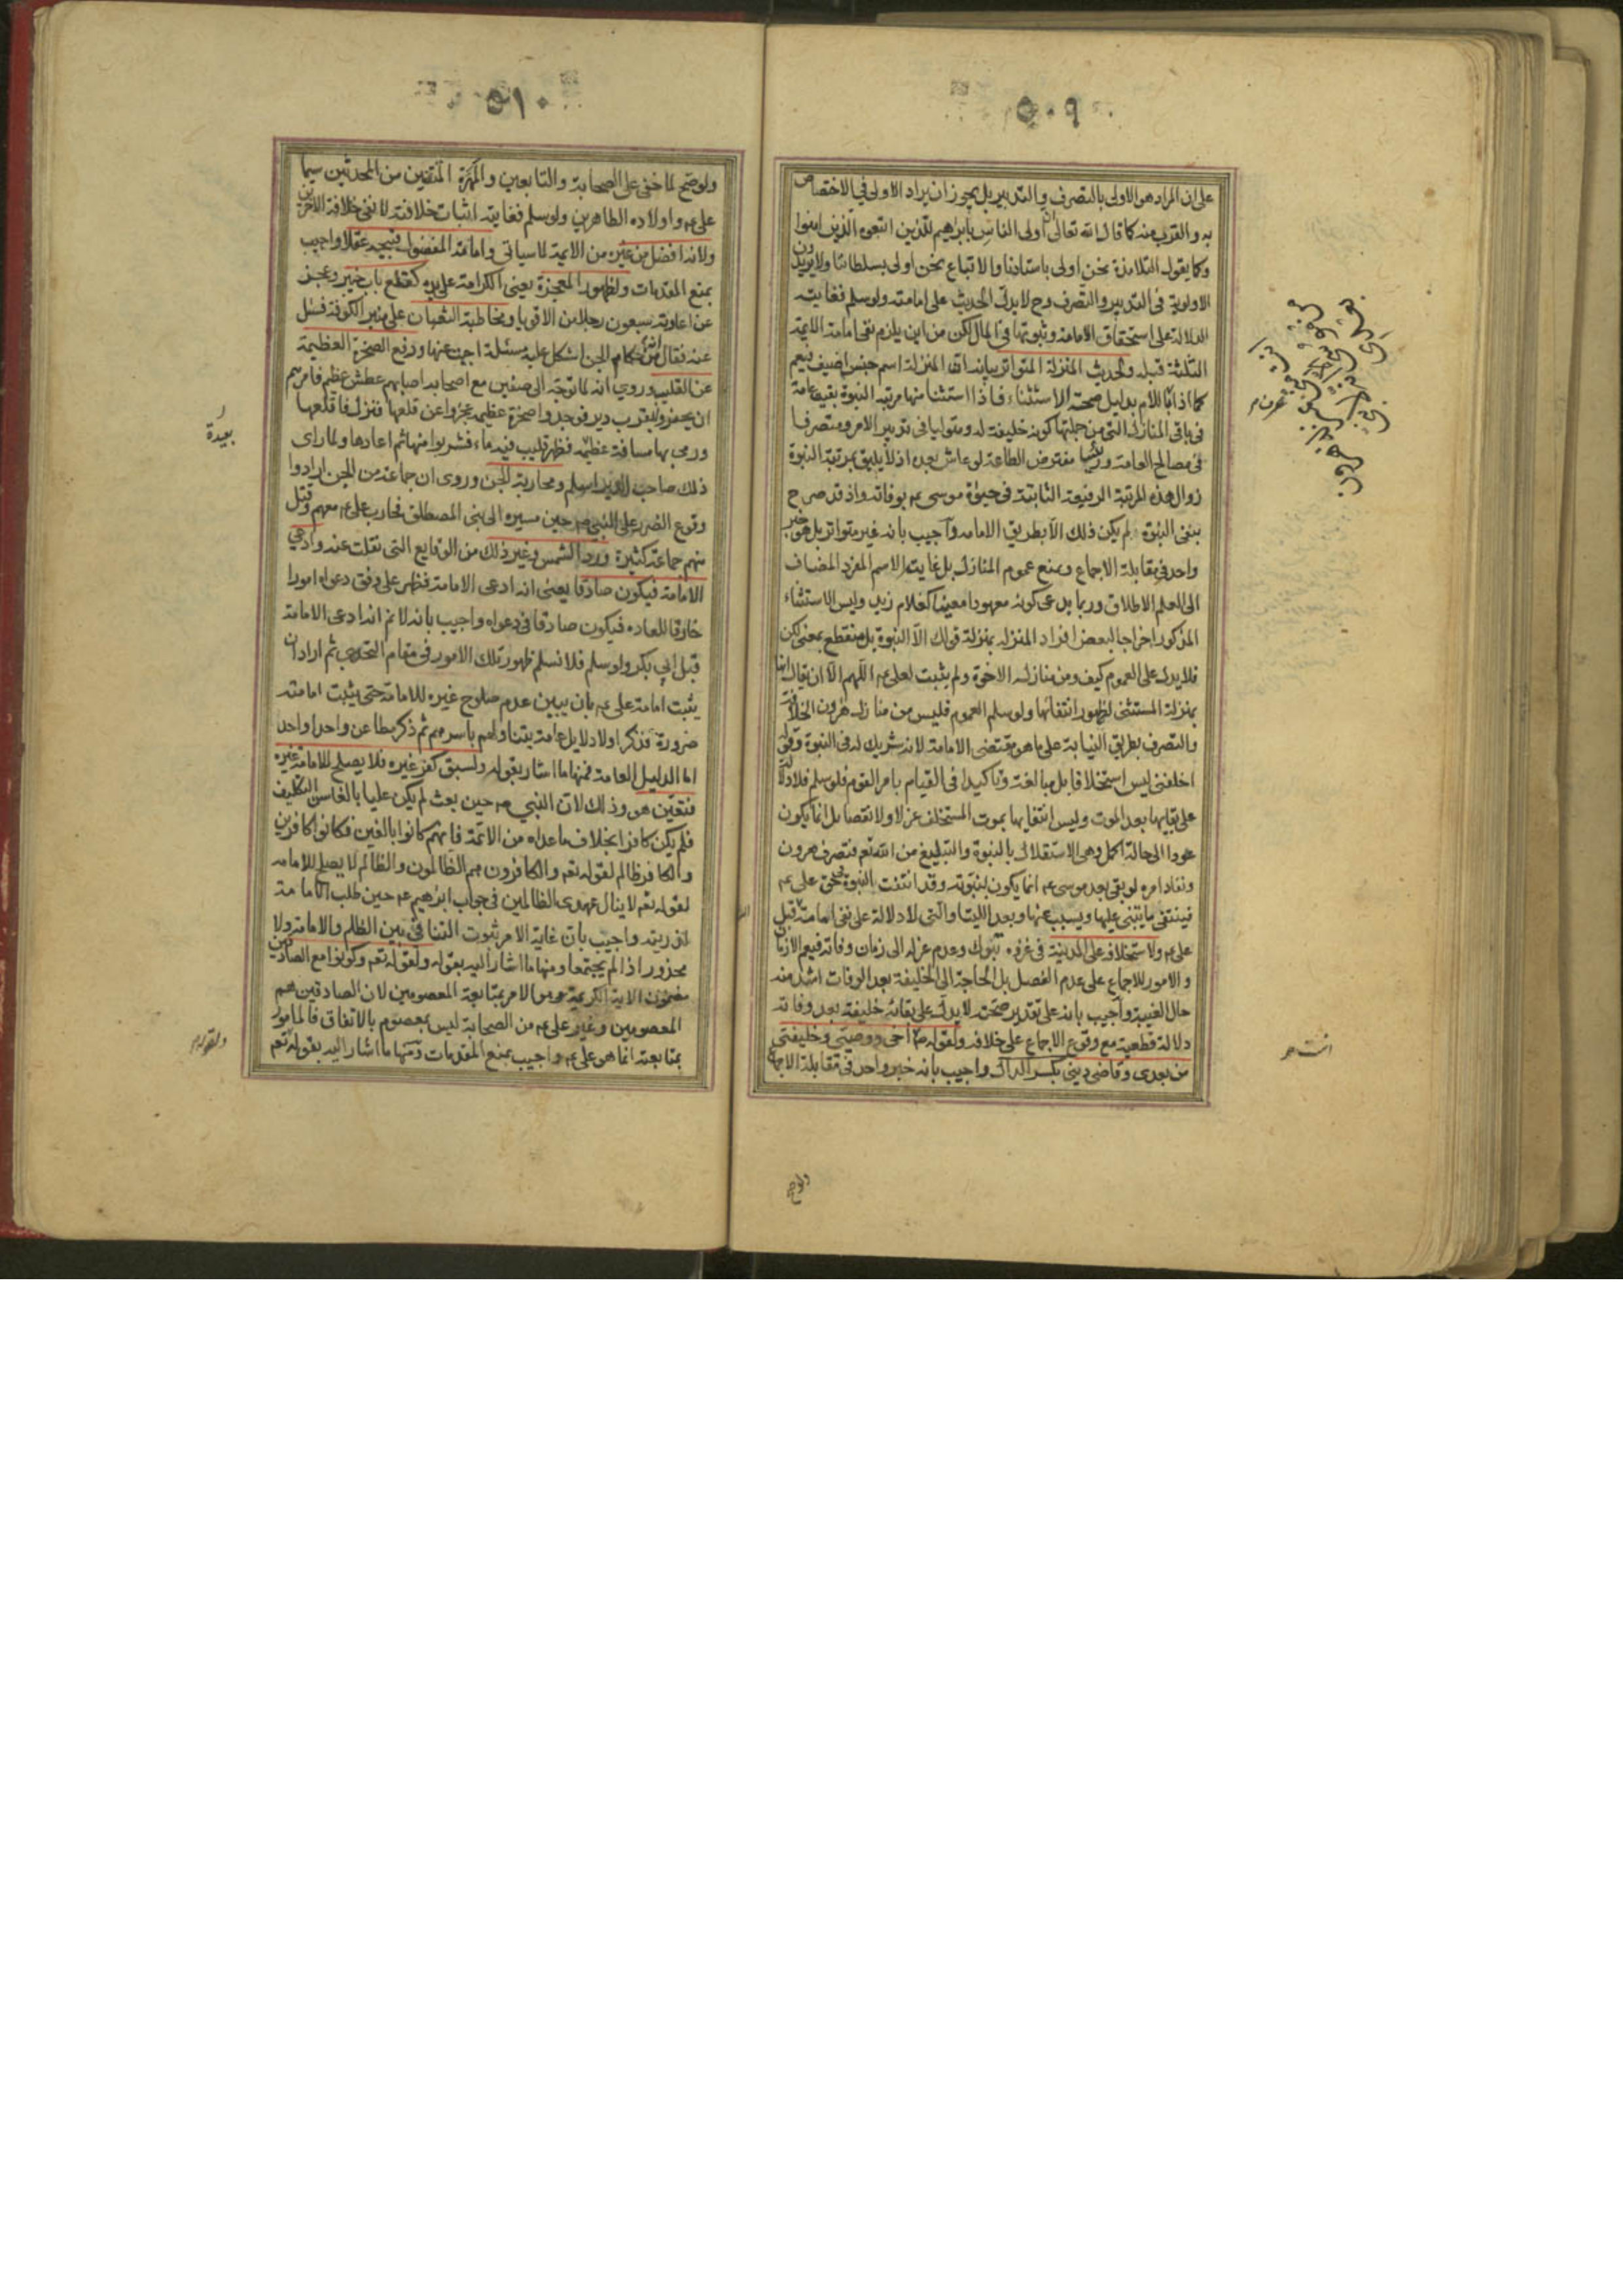 ٥٠٩
على ان المراد هو الاولى بالتصرف والتدبير بل يجوز ان يراد الاولى في الاختصاص
به والقرب منه كما قال الله تعالى ان اولى الناس بابرهيم للذين اتبعوه الذين امنوا
وكما يقول التلامذة نحن اولى باستاذنا والاتباع نحن اولى بسلطاننا ولا يريدون
الاولوية فى التدبير والتصرف وح لا يدل الحديث على امامته ولو سلم فغايته
الدلالة على استحقاق الامامة وثبوتها فى المال لكن من اين يلزم نفى امامة الائمة
الثلثة قبله ولحديث المنزلة المتواتر بيانه ان المنزلة اسم جنس اضيف فيعم
كما اذا باللام بدليل صحة الاستثناء فاذا استثنا منها مرتبة النبوة بقيت عامة
فى باقى المنازل التى من جملتها كونه خليفة له ومتوليا فى تدبير الامر ومتصرفا
فى مصالح العامة ورئيسا مفترض الطاعة لو عاش بعده اذ لا يليق بمرتبة النبوة
زوال هذه المرتبة الرفيعة الثابتة فى حيوة موسى عم بوفاته واذ قد صرح
بنفى النبوة لم يكن ذلك الا بطريق الامامة واجيب بانه غير متواتر بل هو خبر
واحد فى مقابلة الاجماع وبمنع عموم المنازل بل غاية الاسم المفرد المضاف
الى العلم الاطلاق وربما يدعى كونه معهودا معينا كغلام زيد وليس الاستثناء
المذكور اخراجا لبعض افراد المنزلة بمنزلة قولك الا النبوة بل منقطع بمعنى لكن
فلا يدل على العموم كيف ومن منازله الاخوة ولم يثبت لعلى عم اللهم الا ان يقال انها
بمنزلة المستثنى لظهور انتفائها ولو سلم العموم فليس من منازل هرون الخلافة
والتصرف بطريق النيابة على ما هو مقتضى الامامة لانه شريك له فى النبوة وقوله
اخلفنى ليس استخلافا بل مبالغة وتاكيدا فى القيام بامر القوم فلو سلم فلا دلالة
على بقائها بعد الموت وليس انتفائها بموت المستخلف عزلا ولا نقصا بل انما يكون
عودا الى حالة اكمل وهى الاستقلال بالنبوة والتبليغ من الله تعم فتصرف هرون
ونفاد امره لو بقى بعد موسى عم انما يكون لنبوته وقد انتفت النبوة فى حق على عم
فينتفى ما يبتنى عليها ويتسبب عنها وبعد اللتيا والتى لا دلالة على نفى امامة قبل
على عم ولاستخلافه على المدينة فى غزوة تبوك وعدم عزله الى زمان وفاته فيعم الازمان
والامور للاجماع على عدم الفصل بل الحاجة الى الخليفة بعد الوفات اشد منه
حال الغيبة واجيب بانه على تقدير صحته لا يدل على بقائه خليفة بعد وفاته
دلالة قطعية مع وقوع الاجماع على خلافه ولقوله ص اخى ووصيتى وخليفتى
من بعدى وقاضى دينى بكسر الدال واجيب بانه خبر واحد فى مقابلة الاجماع
انت
ولوضح
٥١٠
ولوضح لما خفى على الصحابة والتابعين والمهرة المتقنين من المحدثين سيما
على عم واولاده الطاهرين ولو سلم فغايته اثبات خلافته لا نفى خلافة الآخرين
ولانه افضل من غيره من الائمة لما سياتى وامامة المفضول قبيحة عقلا واجيب
بمنع المقدمات ولظهور المعجزة يعنى الكرامة على يده كقلع باب خيبر وعجز
عن اعادته سبعون رجلا من الاقويا ومخاطبة الثعبان على منبر الكوفة فسئل
عنه فقال انه من حكام الجن اشكل عليه مسئلة اجبته عنها ورفع الصخرة العظيمة
عن القليب وروي انه لما توجه الى صفين مع اصحابه اصابهم عطش عظيم فامرهم
ان يحفروا بقرب دير فوجدوا صخرة عظيمة عجزوا عن قلعها فنزل فاقلعها
ورمى بها مسافة عظيمة فظهر قليب فيه ماء فشربوا منها ثم اعادها ولما راى
بعيدة
ذلك صاحب الدير اسلم ومحاربة الجن وروى ان جماعة من الجن ارادوا
وقوع الضرر على النبى ص حين مسيره الى بنى المصطلق فحارب على عم معهم وقتل
منهم جماعة كثيرة ورد الشمس وغير ذلك من الوقايع التى نقلت عنه وادعى
الامامة فيكون صادقا يعنى انه ادعى الامامة فظهر على وفق دعواه امورا
خارقا للعادة فيكون صادقا فى دعواه واجيب بانه لا نم انه ادعى الامامة
قبل ابى بكر ولو سلم فلا نسلم ظهور تلك الامور فى مقام التحدى ثم اراد ان
يثبت امامة على عم بان يبين عدم صلوح غيره للامامة حتى يثبت امامته
ضرورة فذكر اولا دلايل عامة يتناولهم باسرهم ثم ذكر مطاعن واحدا واحد
اما الدليل العامة فمنها ما اشار بقوله ولسبق كفر غيره فلا يصلح للامامة غيره
فتعين هو وذلك لان النبى ص حين بعث لم يكن عليا بالغا سن التكليف
فلم يكن كافرا بخلاف ما عداه من الائمة فانهم كانوا بالغين فكانوا كافرين
والكافر ظالم لقوله تعم والكافرون هم الظالمون والظالم لا يصلح للامامة
لقوله تعم لا ينال عهدى الظالمين فى جواب ابرهيم عم حين طلب الامامة
لذريته واجيب بان غاية الامر ثبوت التنافى بين الظلم والامامة ولا
محذور اذا لم يجتمعا ومنها ما اشار اليه بقوله ولقوله تعم وكونوا مع الصادقين
مضمون الاية الكريمة هو الامر بمتابعة المعصومين لان الصادقين هم
المعصومين وغير على عم من الصحابة ليس بمعصوم بالاتفاق فالمامور
بمتابعته انما هو على عم واجيب بمنع المقدمات ومنها ما اشار اليه بقوله تعم
ولقوله